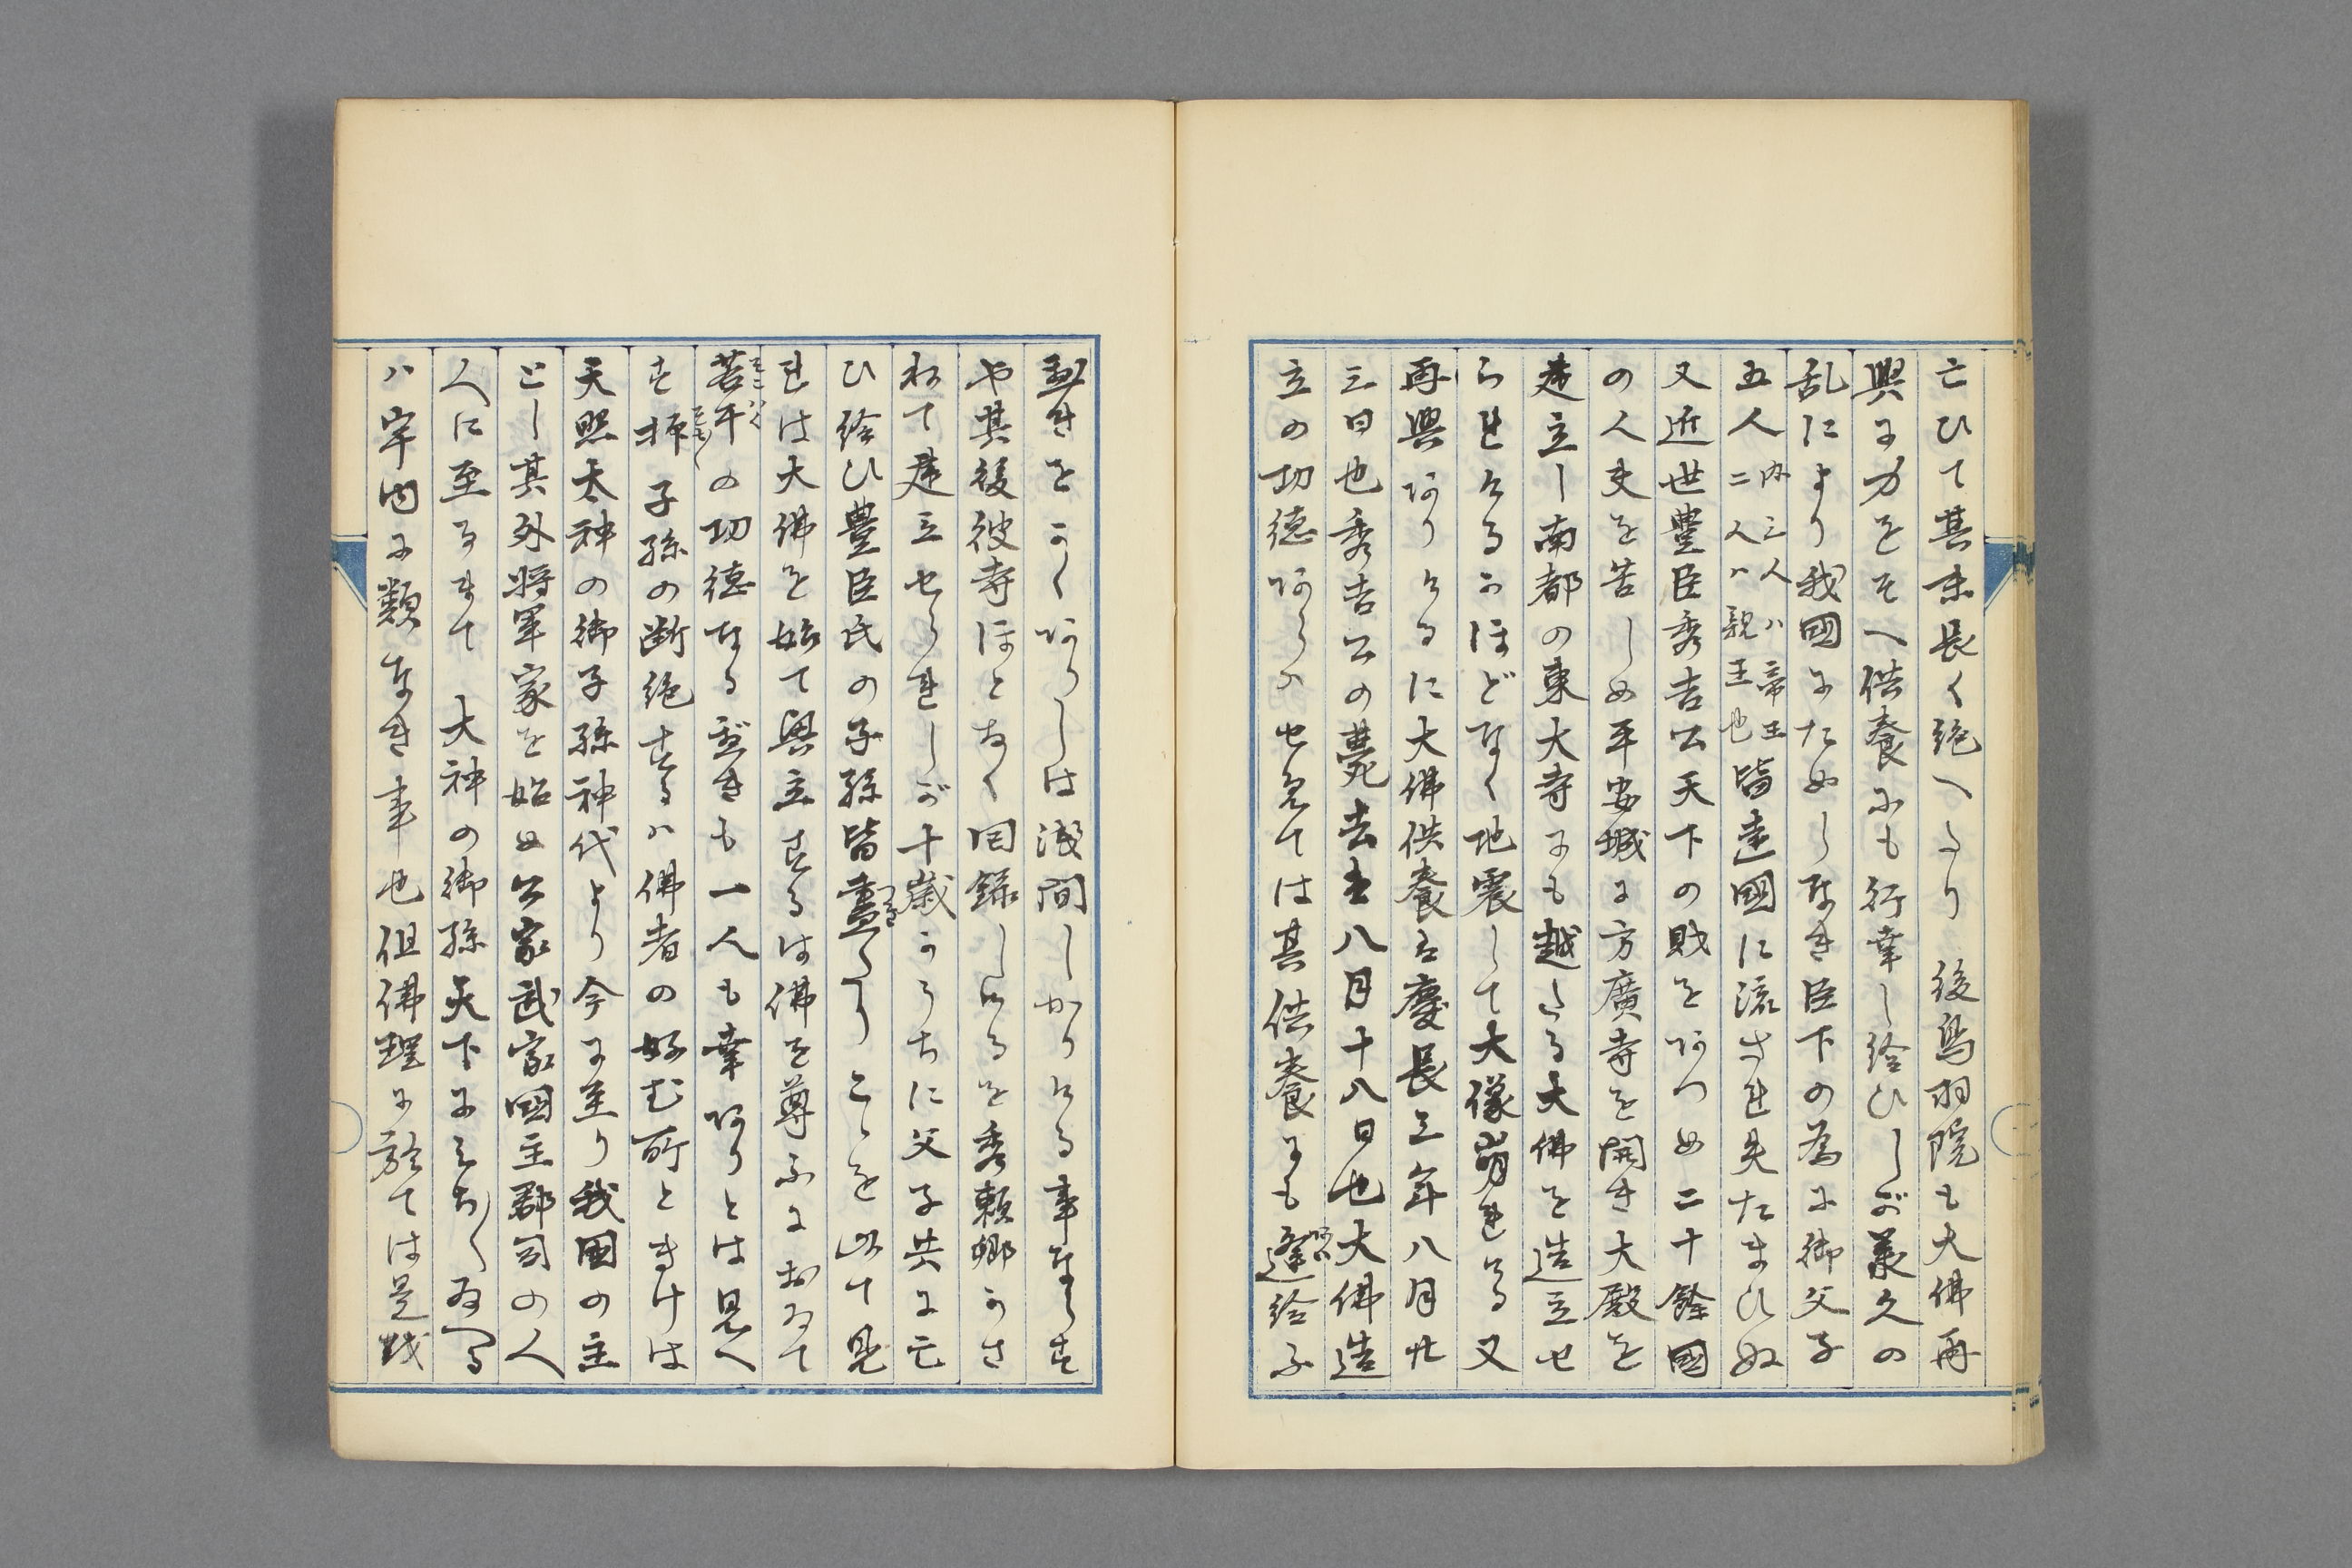 亡ひて其末長く絶へたり 後鳥羽院も大佛再
興に力をそへ供養にも行幸し給ひしが義久の
乱により我國にためしなき臣下の為に御父子
五人内三人ハ帝王二人ハ親王也皆遠國に流され失たまひぬ
又近世豊臣秀吉公天下の財をあつめ二十餘國
の人夫を苦しめ平安城に方廣寺を開き大殿を
建立し南都の東大寺にも越たる大佛を造立せ
られけるかほどなく地震して大像崩れける又
再興ありけるに大佛供養は慶長三年八月廿
三日也秀吉公の薨去は八月十八日也大佛造
立の功徳あらハせめては其供養にも逢給ふ
へきをかくありしは淺間しかりける事ならす
や其後彼寺ほとなく回録しけるを秀頼卿かさ
ねて建立せられしが十歳かうちに父子共に亡
ひ給ひ豊臣氏の子孫皆盡たりこゝを以て見
れは大佛を始て興立するは佛を尊ふにおゐて
若干の功徳なるべきも一人も幸ありとは見へ
す抑子孫の断絶するハ佛者の好む所ときけは
天照太神の御子孫神代より今に至り我國の主
とし其外将軍家を始め公家武家國主郡司の人
人に至るまて 大神の御孫天下にみちしくゐへる
ハ宇内に類なき事也但佛理に於ては是或